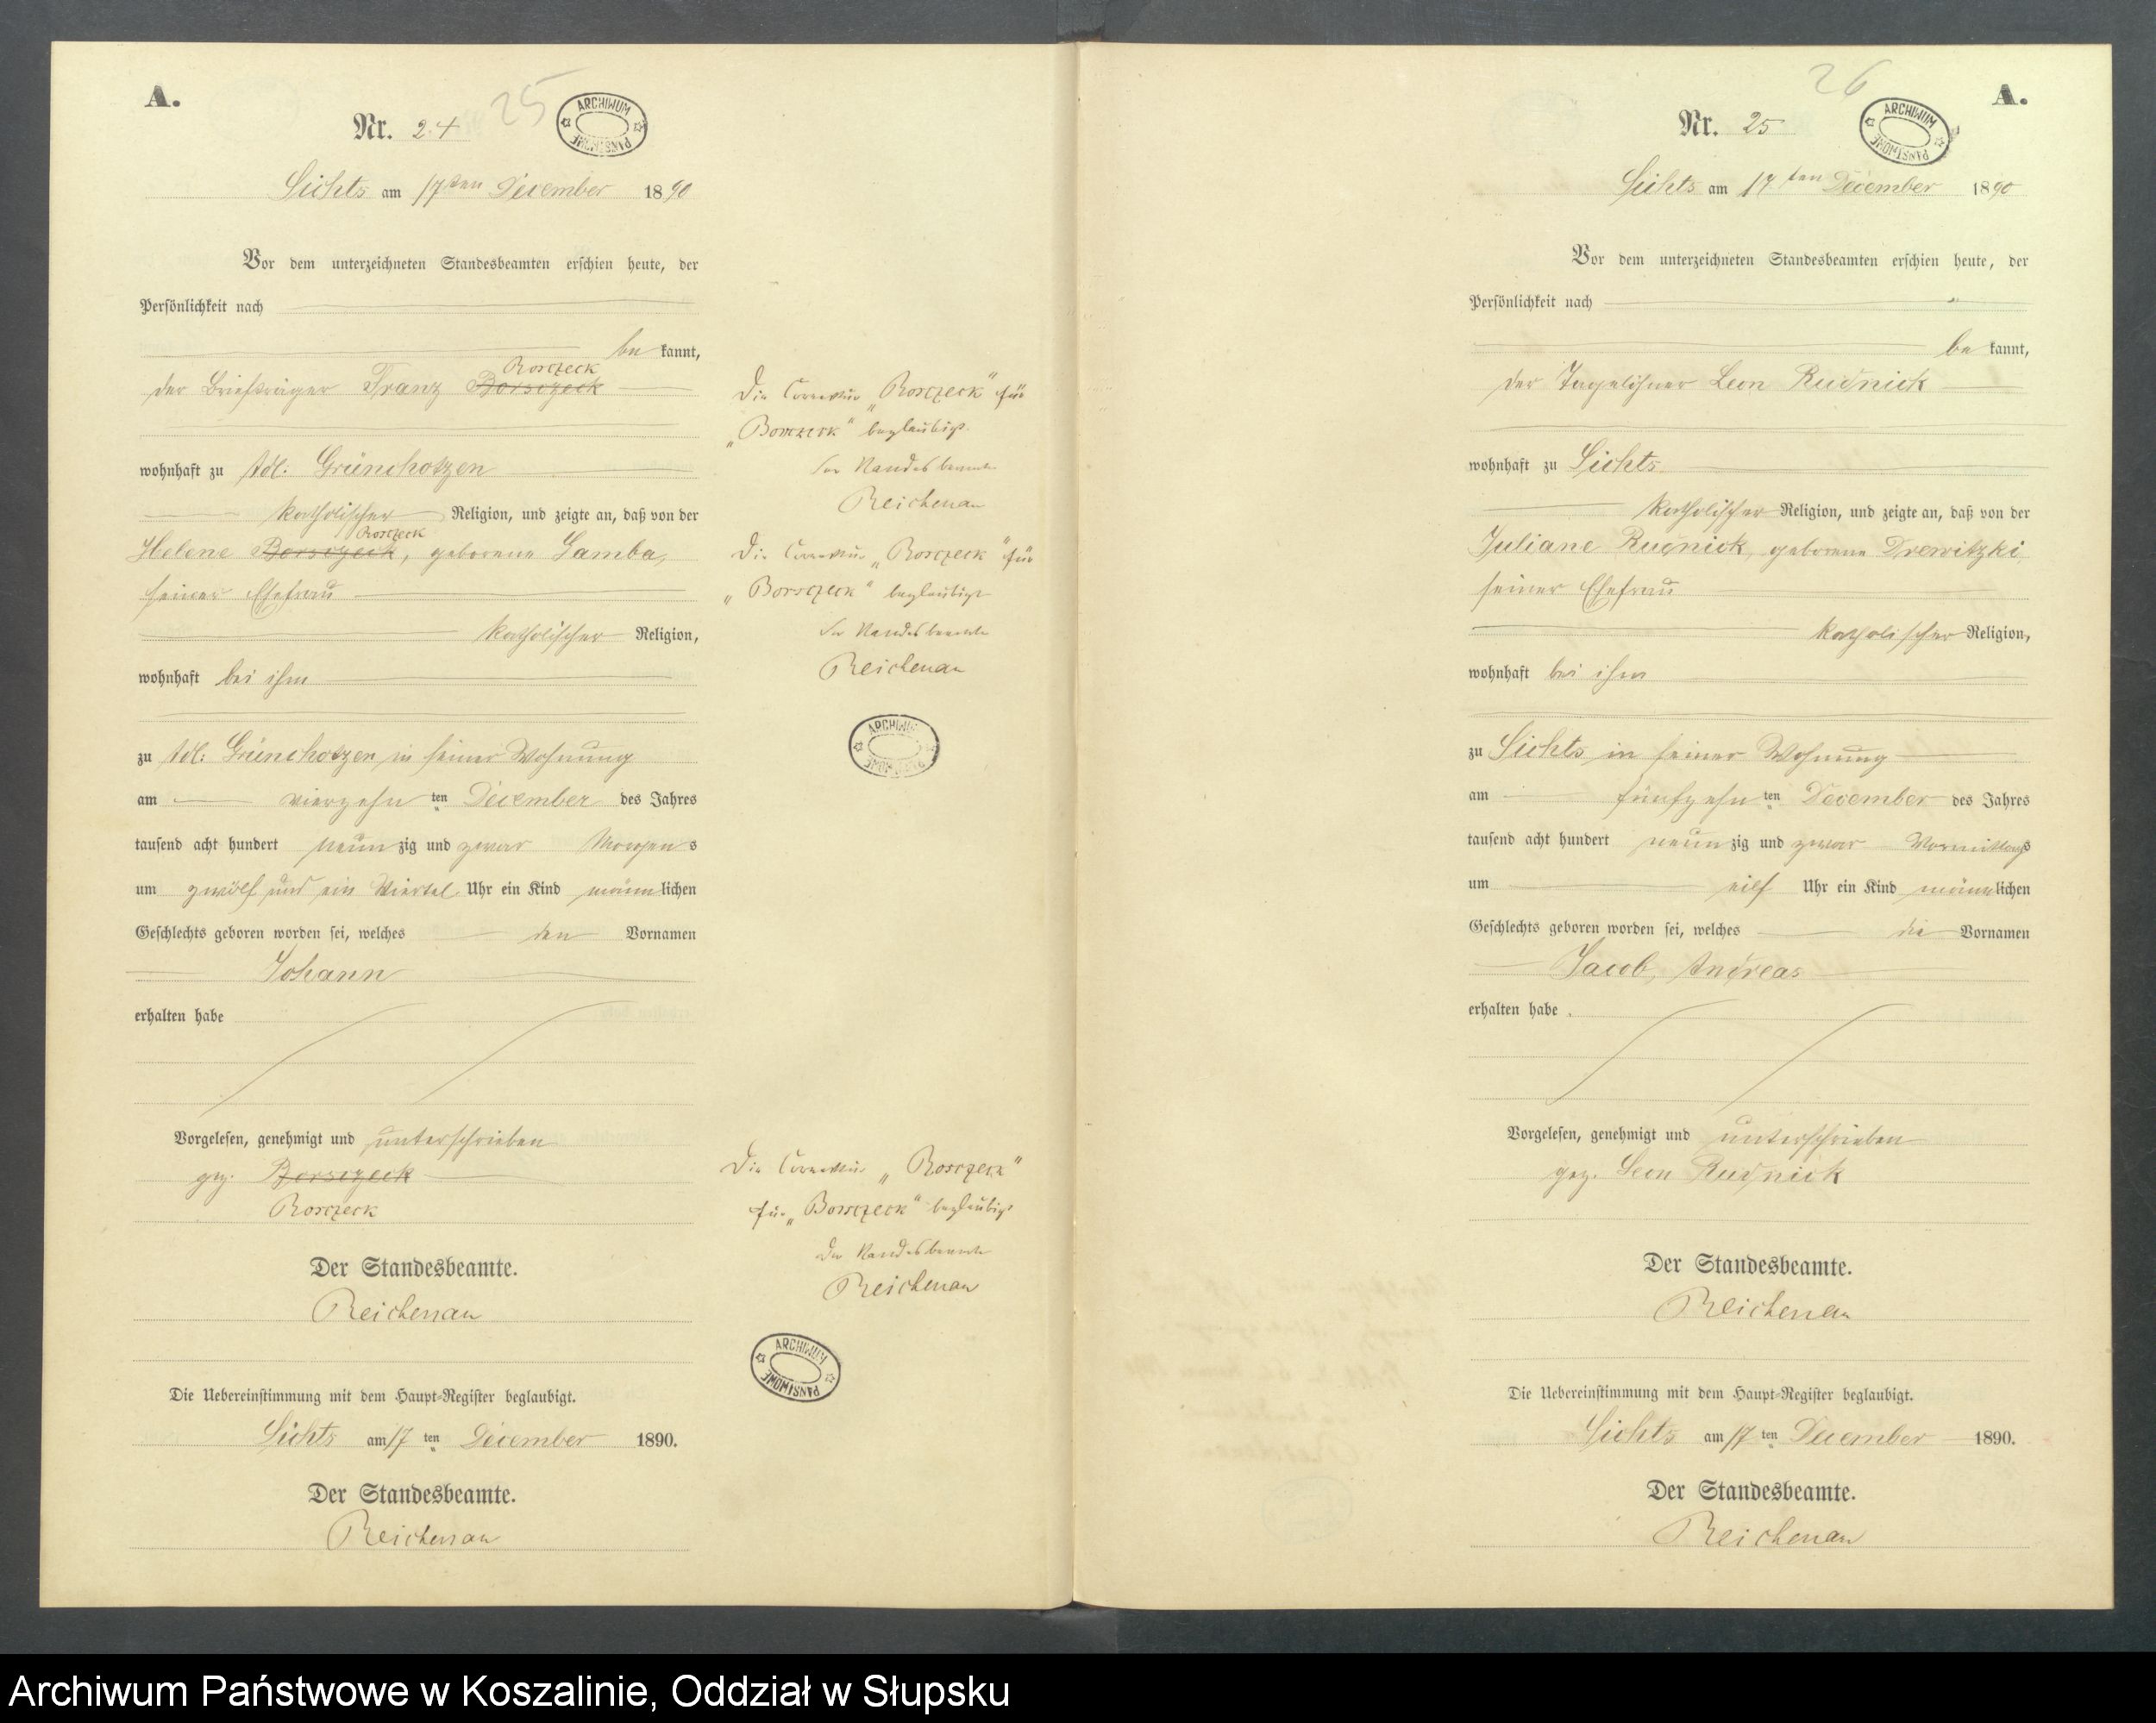 A.
25
Nr. 24
ARCHIWUM PAŃSTWOWE
Sichts am 17ten December 1890
Vor dem unterzeichneten Standesbeamten erschien heute, der
Persönlichkeit nach
be kannt,
Rosczeck
der Briefträger Franz Borsczeck
wohnhaft zu Adl: Grünchotzen
katholischer Religion, und zeigte an, daß von der
Rosczeck
Helene Borsczeck, geborene Gamba,
seiner Ehefrau
katholischer Religion,
wohnhaft bei ihm
zu Adl: Grünchotzen in seiner Wohnung
am vierzehn ten December des Jahres
tausend acht hundert neun zig und zwar Morgen s
um zwölf und ein Viertel Uhr ein Kind männ lichen
Geschlechts geboren worden sei, welches den Vornamen
Johann
erhalten habe
Vorgelesen, genehmigt und unterschrieben
gez. Borsczeck
Rosczeck
Der Standesbeamte.
Reichenau
Die Uebereinstimmung mit dem Haupt-Register beglaubigt.
Sichts am 17 ten December 1890.
Der Standesbeamte.
Reichenau
Die Correctur „Rosczeck" für
„Borsczeck" beglaubigt
Der Standesbeamte
Reichenau
Die Correctur „Rosczeck" für
„Borsczeck" beglaubigt
Der Standesbeamte
Reichenau
ARCHIWUM PAŃSTWOWE
Die Correctur „Rosczeck"
für „Borsczeck" beglaubigt
Der Standesbeamte
Reichenau
ARCHIWUM PAŃSTWOWE
26
A.
Nr. 25
ARCHIWUM PAŃSTWOWE
Sichts am 17ten December 1890
Vor dem unterzeichneten Standesbeamten erschien heute, der
Persönlichkeit nach
be kannt,
der Tagelöhner Leon Rudnick
wohnhaft zu Sichts
katholischer Religion, und zeigte an, daß von der
Juliane Rudnick, geborene Drewitzki,
seiner Ehefrau
katholischer Religion,
wohnhaft bei ihm
zu Sichts in seiner Wohnung
am fünfzehn ten December des Jahres
tausend acht hundert neun zig und zwar Vormittags
um eilf Uhr ein Kind männ lichen
Geschlechts geboren worden sei, welches die Vornamen
Jacob, Andreas
erhalten habe .
Vorgelesen, genehmigt und unterschrieben
gez. Leon Rudnick
Der Standesbeamte.
Reichenau
Die Uebereinstimmung mit dem Haupt-Register beglaubigt.
Sichts am 17 ten December 1890.
Der Standesbeamte.
Reichenau
Archiwum Państwowe w Koszalinie, Oddział w Słupsku